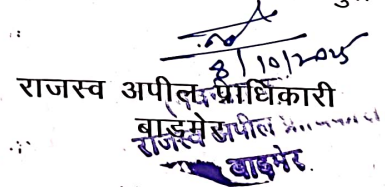 8/10/2025
राजस्व अपील प्राधिकारी
बाड़मेर
राजस्व अपील
बाड़मेर